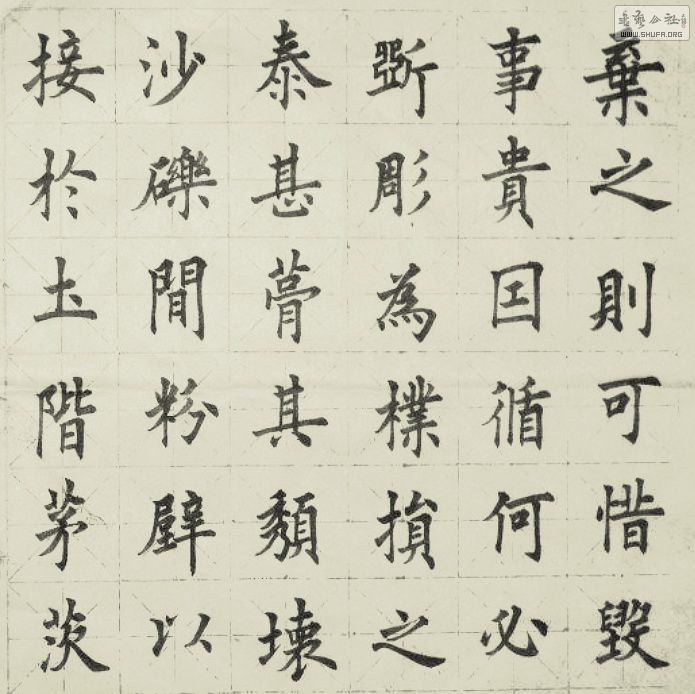 棄之則可惜毀
事貴囙循何必
斵彫為樸損之
泰甚葺其頹壞
沙礫間粉壁以
接於圡階茅茨
書藝公社
WWW.SHUFA.ORG